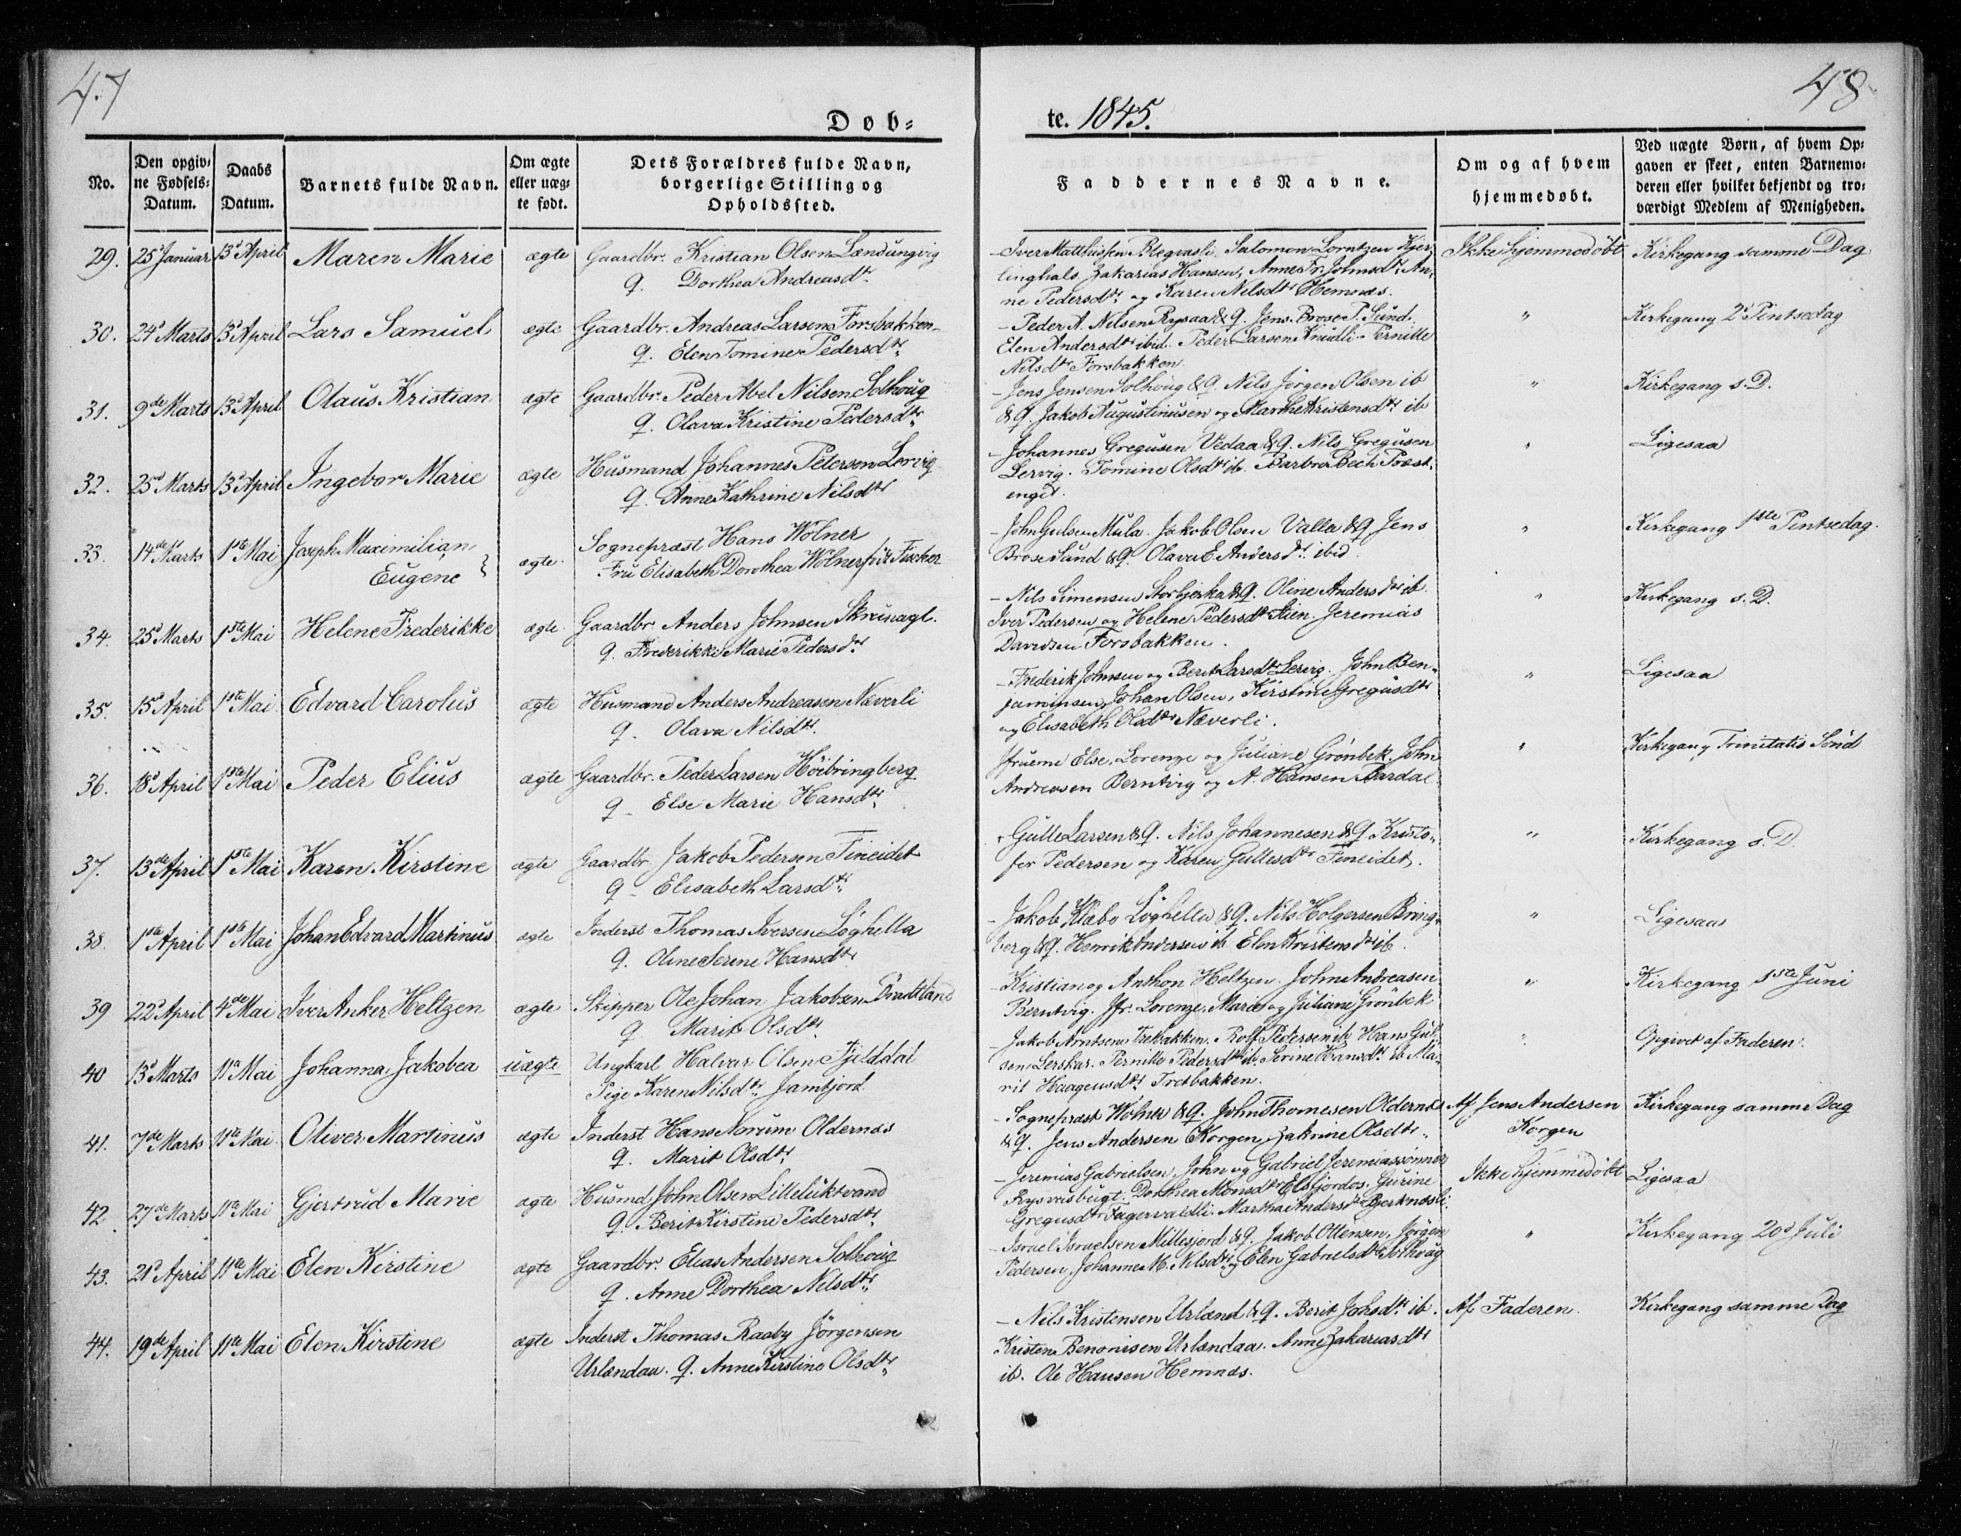 47
48
Døb-
te. 1845.
No.
Den opgiv-
ne Fødsels-
Datum.
Daabs
Datum.
Barnets fulde Navn.
Om ægte
eller uæg-
te født.
Dets Forældres fulde Navn,
borgerlige Stilling og
Opholdssted.
Faddernes Navne.
Om og af hvem
hjemmedøbt.
Ved uægte Børn, af hvem Op-
gaven er skeet, enten Barnemo-
deren eller hvilket bekjendt og tro-
værdigt Medlem af Menigheden.
29. 25d Januar 13d April Maren Marie ægte Gaardbr. Kristian Olsen
Q. Dorthea Andreasdtr
Salomon Lorntzen
linghals Zakarias Hansen, Anne Fr. Johnsdtr An-
ne Pedersdtr og Karen Nilsdtr Hemnæs.
Ikke hjemmedøbt Kirkegang samme Dag
30. 24d Marts 13d April Lars Samuel ægte Gaardbr. Andreas Larsen Forsbakken
Q. Elen Tomine Pedersdtr
Peder A. Nilsen Rysaa & Q. Jens Brose P. Sund.
Elen Andersdtr ibid. Peder Larsen Pernille
Nilsdtr Forsbakken
" Kirkegang 2d Pintsedag
31. 9de Marts 13d April Olaus Kristian ægte Gaardbr. Peder Abel Nilsen Solhoug
Q. Olava Kristine Pedersdtr
Jens Jensen Solhoug & Q. Nils Jørgen Olsen ib
& Q. Jakob Augustinusen og Marthe Kristensdtr ib
" Kirkegang s. D.
32. 25d Marts 13d April Ingebor Marie ægte Husmand Johannes Petersen Lervig
Q. Anne Kathrine Nilsdtr
Johannes Gregusen Vedaa & Q. Nils Gregusen
Lervig. Tomine Olsdtr ib. Barbra Bech Præst-
enget.
" Ligesaa
33. 14de Marts 1ste Mai Joseph Maximilian
Eugene
ægte. Sognepræst Hans Wolner
Fru Elisabeth Dorothea Wolner født Fischer
John Gulsen Mula. Jakob Olsen Valla & Q. Jens
Brose Sund & Q. Olava E. Andersdtr ibid
" Kirkegang 1ste Pintsedag.
34. 25d Marts 1ste Mai Helene Frederikke ægte Gaardbr Anders Johnsen
Q. Frederikke Marie Pedersdtr
Nils Simensen Storbjerka & Q. Oline Andersdtr ib
Iver Pedersen og Helene Pedersdtr Stien. Jeremias
Davidsen Forsbakken.
" Kirkegang s. D.
35. 15d April 1ste Mai Edvard Carolus ægte Husmand Anders Andreasen Næverli
Q. Olava Nilsdtr.
Frederik Johnsen og Berit Larsdtr Lervig. John Ben-
jaminsen, Johan Olsen, Kirstine Gregusdtr
og Elisabeth Olsdtr Næverli.
" Ligesaa
36. 18d April 1ste Mai Peder Elius ægte Gaardbr. Peder Larsen Höibringberg
Q. Else Marie Hansdtr.
Else, Lorenze og Juliane Grønbek. John
Andreasen Berntvig og A. Hansen Bardal
" Kirkegang Trinitatis Sönd
37. 13de April 1ste Mai Karen Kirstine ægte Gaardbr. Jakob Pedersen Fineidet
Q. Elisabeth Larsdtr
Gulle Larsen & Q. Nils Johannesen & Q. Kristo-
fer Pedersen og Karen Gullesdtr Fineidet.
" Kirkegang s. D.
38. 1ste April 1ste Mai Johan Edvard Martinus ægte Inderst Thomas Iversen Löghella
Q. Oline Serene Hansdtr
Jakob Klæbo Löghella & Q. Nils Holgersen Bring-
berg & Q. Henrik Andersen ib. Elen Kristensdtr ib.
" Ligesaa
39 22d April 4de Mai Iver Anker Heltzen ægte Skipper Ole Johan Jakobsen Bradtland
Q Marit Olsdtr.
Kristian og Anthon Heltzen. John Andreasen
Berntvig. Jfr. Lorenze, Marie og Juliane Grønbek
" Kirkegang 1ste Juni
40 13d Marts 11te Mai Johanna Jakobea uægte Ungkarl Halvar Olsen Fjelddal
Pige Karen Nilsdtr. Jamtjord
Jakob Arntsen Rolf Pedersen ib. Hans Gul-
sen Lerskar. Pernille Pedersdtr ib. Serine Hansdtr ib. Ma-
rit Haagensdtr
" Opgivet af Faderen.
41. 7de Marts 11te Mai Oliver Martinus ægte Inderst Hans Norum Oldernæs
Q. Marit Olsdtr
Sognepræst Wolner & Q. John Thomesen Oldernæs
& Q. Jens Andersen Korgen, Zakrine Olsdtr.
Af Jens Andersen
Korgen
Kirkegang samme Dag
42. 27de Marts 11te Mai Gjertrud Marie ægte Husmd. John Olsen
Q. Berit Kirstine Pedersdtr
Jeremias Gabrielsen, John og Gabriel Jeremiassønner
Dorthea Monsdtr Elsfjordos. Gurine
Gregusdtr Fagervaldli. Martha Andersdtr Bjerknæsli
Ikke hjemmedøbt Ligesaa
43. 21d April 11te Mai Elen Kirstine ægte Gaardbr. Elias Andersen Solhoug
Q. Anne Dorthea Nilsdtr
Israel Israelsen Millesjord & Q. Jakob Ottensen, Jørgen
Pedersen, Johanne M. Nilsdtr og Elen Gabrielsdtr Solhoug
" Kirkegang 20d Juli
44. 19de April 11te Mai Elen Kirstine ægte Inderst Thomas Raaby Jörgensen
Urlandaa. Q. Anne Kirstine Olsdtr.
Nils Kristensen Urland & Q. Berit Johsdtr ib.
Kristen Benonisen Urlandaa. Anne Zakariasdtr
ib. Ole Hansen Hemnæs.
Af Faderen. Kirkegang samme Dag